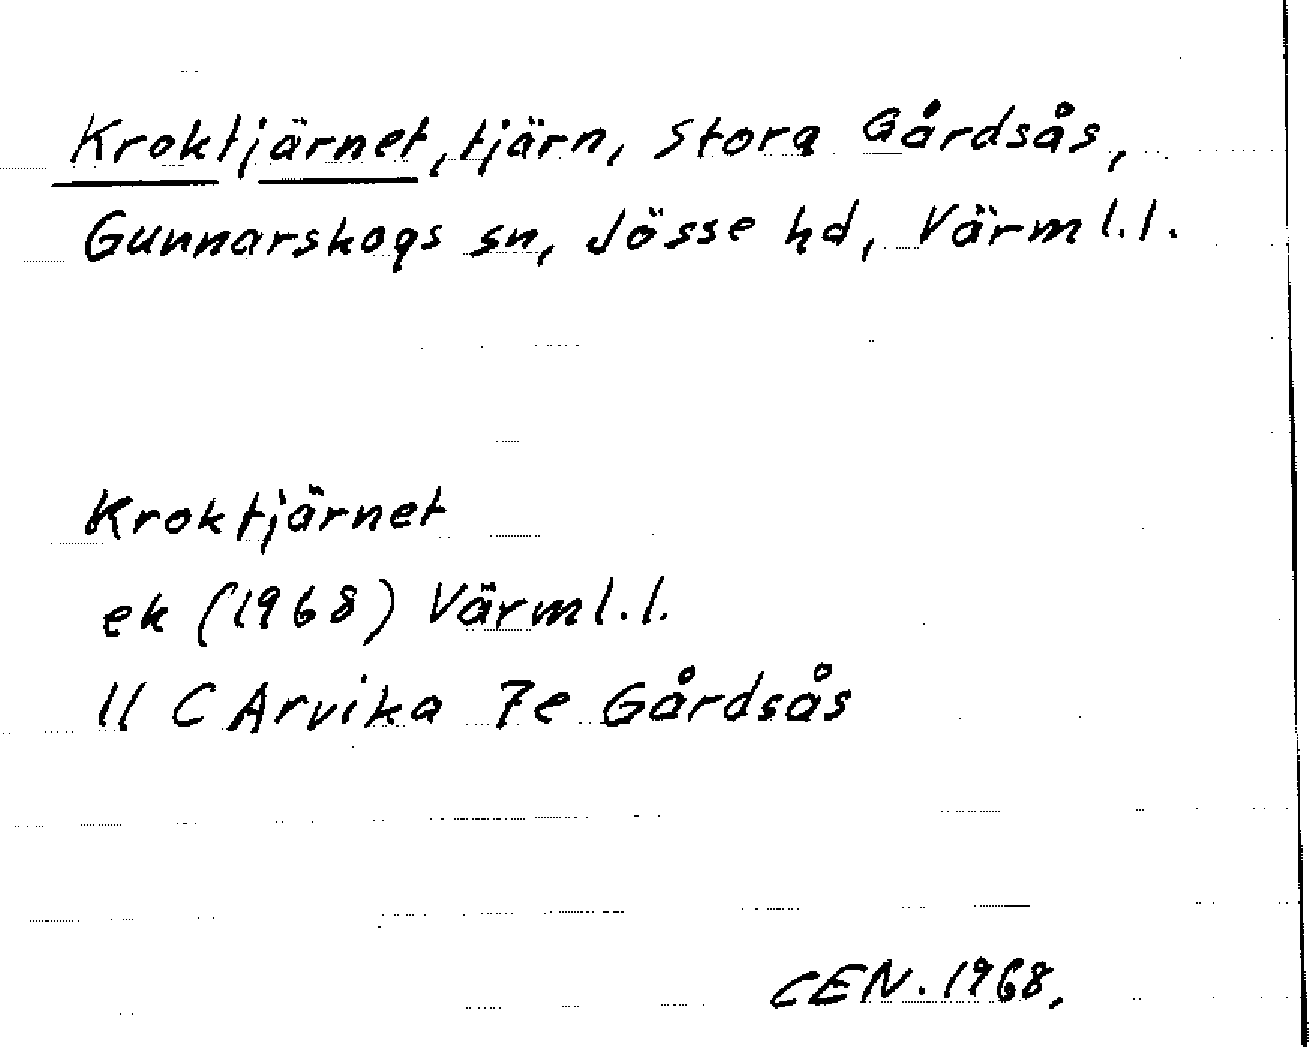 Kroktjärnet, tjärn, Stora Gårdsås,
Gunnarskogs sn, Jösse hd, Värml.l.
Kroktjärnet
ek (1968) Värml.l.
11 C Arvika 7e Gårdsås
CEN. 1968.